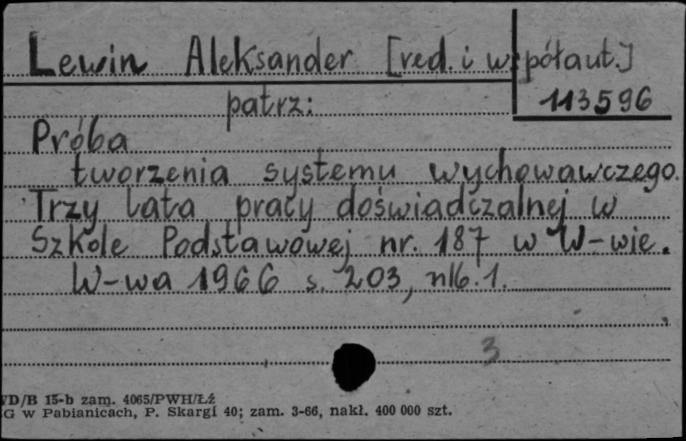 Lewin Aleksander [red. i współaut.]
patrz: 113596
Próba
tworzenia systemu wychowawczego.
Trzy lata pracy doświadczalnej w
Szkole Podstawowej nr. 187 w W-wie.
W-wa 1966 s. 203, nlb. 1.
3
/D/B 15-b zam. 4065/PWH/Łź
G w Pabianicach, P. Skargi 40; zam. 3-66, nakł. 400 000 szt.